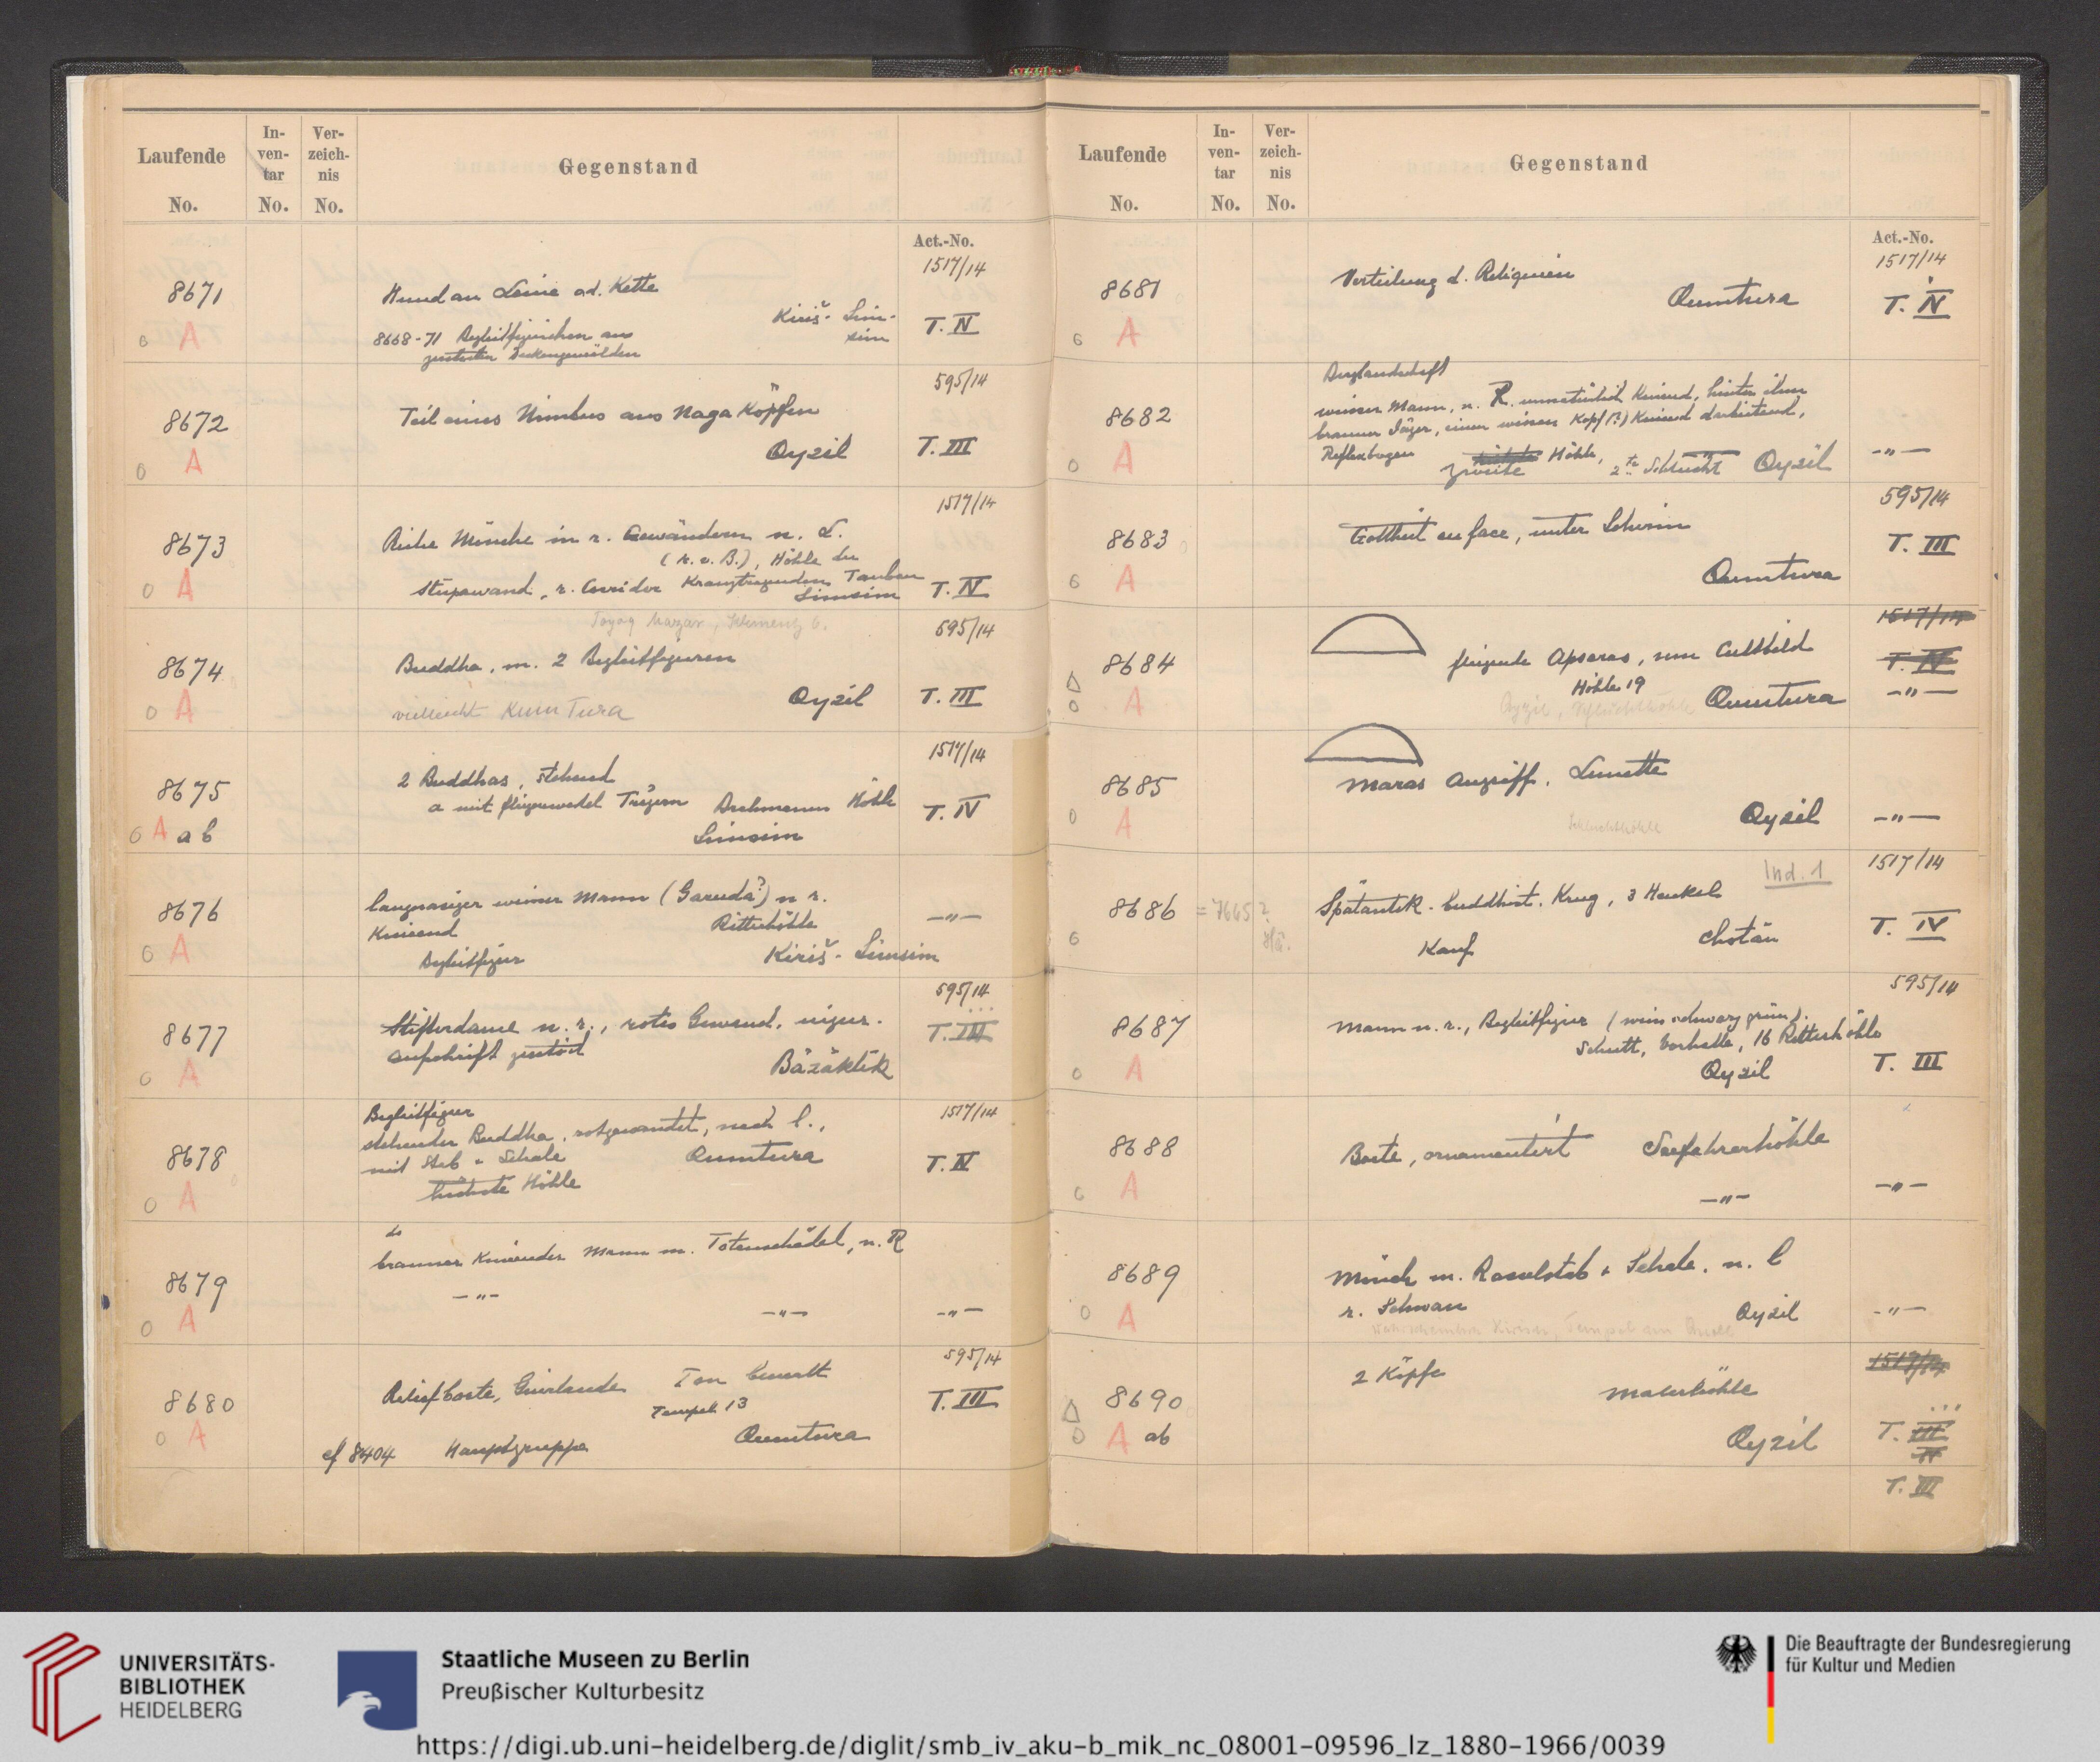 Laufende No.
In-ven-tar No.
Ver-zeich-nis No.
Gegenstand
Act.-No.
1517/14
8671
A
Hund an Leine od. Kette
Kiriš-Sim-
sim
T. IV
8668-71 Begleitfigürchen aus
zerstörten Deckengemälden
595/14
8672
A
Teil eines Nimbus aus Naga Köpfen
Qyzil
T. III
1517/14
8673
A
Reihe Mönche in r. Gewändern n. L.
(A. v. B.), Höhle der
Stupawand, r. Corridor Kranztragenden Tauben
Simsim
T. IV
Toyoq Mazar, Klementz 6.
595/14
8674
A
Buddha, m. 2 Begleitfiguren
Qyzil
T. III
vielleicht Kum Tura
1517/14
8675
A ab
2 Buddhas, stehend
a mit fliegenwedel Trägern
Brahmanen Höhle
T. IV
Simsim
8676
A
langnasiger weisser Mann (Garuda?) n r.
Knieend
Ritterhöhle
-"-
Begleitfigur
Kiriš-Simsim
595/14
8677
A
Stifterdame n. r., rotes Gewand, uigur.
T. III
aufschrift zerstört
Bäzäklik
Begleitfigur
1517/14
8678
A
stehender Buddha, rotgewandet, nach l.,
mit Stab u Schale
Qumtura
T. IV
höchste Höhle
8679
A
do
brauner Knieender Mann m. Totenschädel, n. R
-"-
-"-
-"-
595/14
8680
A
Reliefborte, Guirlande
Ton bemalt
T. III
Tempel 13
Qumtura
cf 8404 Hauptgruppe
Laufende No.
In-ven-tar No.
Ver-zeich-nis No.
Gegenstand
Act.-No.
1517/14
8681
A
Verteilung d. Reliquien
Qumtura
T. IV
Berglandschaft
8682
A
weisser Mann, n. R. unnatürlich Knieend, hinter ihm
brauner Jäger, einen weissen Kopf (?) Knieend darbietend,
Reflexbogen
zweite Höhle, 2te Schlucht Qyzil
-"-
595/14
8683
A
Gottheit en face, unter Schirm
T. III
Qumtura
1517/14
8684
A
fliegende Apsaras, vom Cultbild
T. IV
Höhle 19
Qyzil, Schluchthöhle
Qumtura
-"-
8685
A
Maras Angriff. Lunette
Schluchthöhle
Qyzil
-"-
Ind. 1
1517/14
8686
= 7665?
Spätantik-buddhist. Krug, 3 Henkel
Kauf
Chotän
T. IV
595/14
8687
A
Mann n. r., Begleitfigur (weiss schwarz grün).
Schutt, Vorhalle, 16 Ritterhöhle
Qyzil
T. III
8688
A
Borte, ornamentirt
Seefahrerhöhle
-"-
-"-
8689
A
Mönch m. Rasselstab u Schale. n. l
r. Schwan
Qyzil
-"-
wahrscheinlich Kirisch, Tempel am Quell
2 Köpfe
1517/14
8690
A ab
Malerhöhle
Qyzil
T. III
IV
T. III
UNIVERSITÄTS-
BIBLIOTHEK
HEIDELBERG
Staatliche Museen zu Berlin
Preußischer Kulturbesitz
Die Beauftragte der Bundesregierung
für Kultur und Medien
https://digi.ub.uni-heidelberg.de/diglit/smb_iv_aku-b_mik_nc_08001-09596_lz_1880-1966/0039